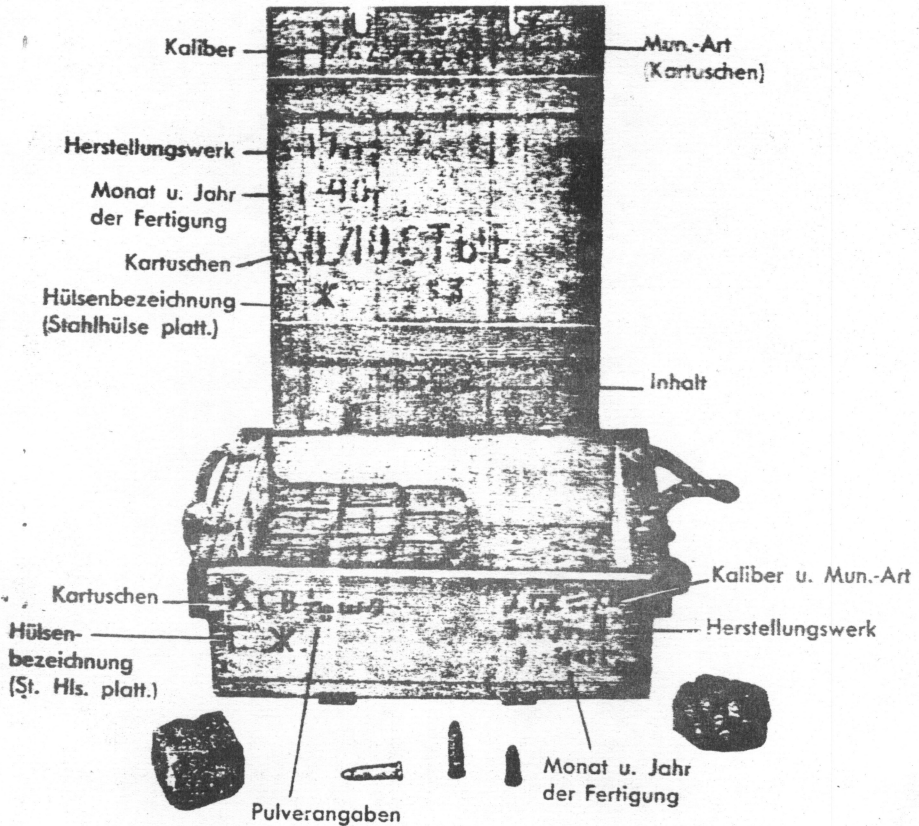 Kaliber
Mun.-Art
(Kartuschen)
Herstellungswerk
Monat u. Jahr
der Fertigung
ХОЛОСТЫЕ
Kartuschen
Hülsenbezeichnung
(Stahlhülse platt.)
Inhalt
Kartuschen
Kaliber u. Mun.-Art
Hülsen-
bezeichnung
(St. Hls. platt.)
Herstellungswerk
Monat u. Jahr
der Fertigung
Pulverangaben